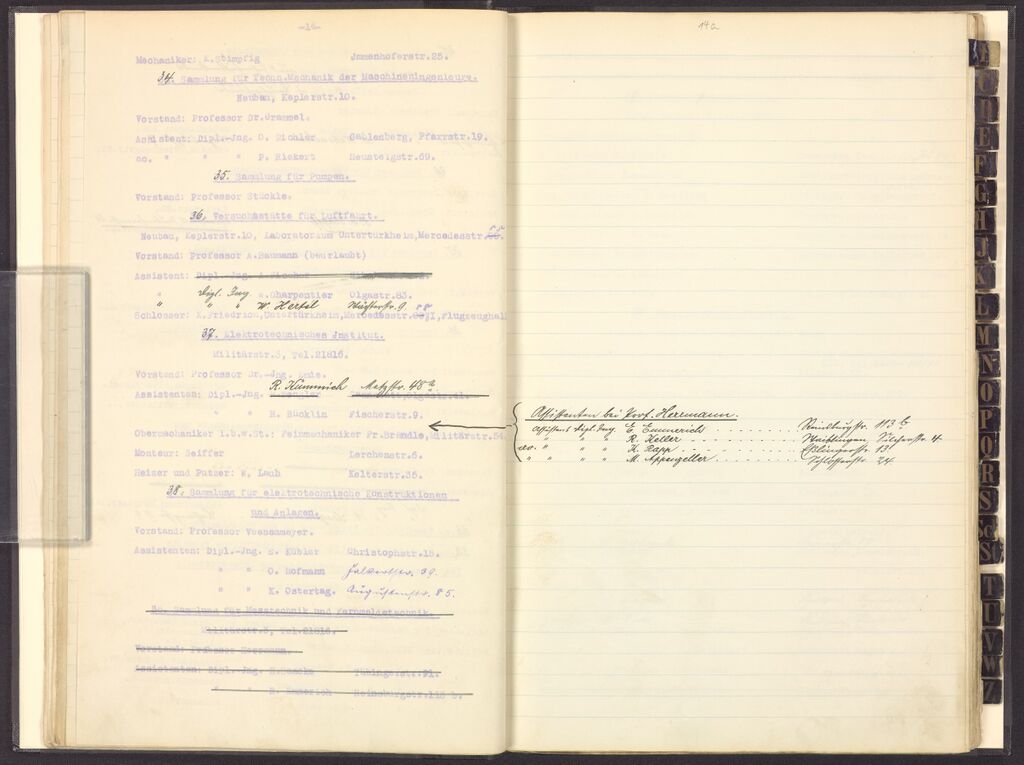 -14-
Mechaniker: K.Stimpfig Jmmenhoferstr.25.
34. Sammlung für Techn.Mechanik der Maschineningenieurw.
Neubau, Keplerstr.10.
Vorstand: Professor Dr.Grammel.
Assistent: Dipl.-Jng. O. Eichler Gablenberg, Pfarrstr.19.
ao. " " " P. Riekert Neusteigstr.69.
35. Sammlung für Pumpen.
Vorstand: Professor Stückle.
36. Versuchsstätte für Luftfahrt.
Neubau, Keplerstr.10, Laboratorium Untertürkheim,Mercedesstr.
Vorstand: Professor A.Baumann (beurlaubt)
Assistent: Dipl.-Jng.
" Dipl. Ing Charpentier Olgastr.83.
" " " W Hertel
Schlosser: K.Friedrich,Untertürkheim,Mercedesstr. I,Flugzeughal
37. Elektrotechnisches Jnstitut.
Militärstr.3, Tel.21816.
Vorstand: Professor Dr.-Jng. Emde.
Assistenten: Dipl.-Jng. R. Kümmich Metzstr. 48a
" " H. Bücklin Fischerstr.9.
Obermechaniker i.b.w.St.: Feinmechaniker Fr.Brändle,Militärstr.54
Monteur: Seiffer Lerchenstr.6.
Heizer und Putzer: W. Lauh Kelterstr.36.
38. Sammlung für elektrotechnische Konstruktionen
und Anlagen.
Vorstand: Professor Veesenmeyer.
Assistenten: Dipl.-Jng. E. Kübler Christophstr.18.
" " O. Hofmann Falkertstr. 99.
" " K. Ostertag. Augustenstr. 85.
Sammlung für Messtechnik und Fernmeldetechnik.
Militärstr.3, Tel.21816.
Vorstand: Professor Herrmann.
Assistenten: Dipl.-Jng. Tübingerstr.91.
" " E. Emmerich Reinsburgstr.113 b.
14a
Assistenten bei Prof. Herrmann.
Assistent Dipl. Ing E. Emmerich Reinsburgstr. 113 b
" " " R. Keller Waiblingen 4
ao. " " " K. Rapp Esslingerstr. 13
" " " " M. Appenzeller Schlosserstr. 24
C
D
E
F
G
H
J
K
L
M
N
O
P
Q
R
S
Sch
S
T
U
V
W
Z